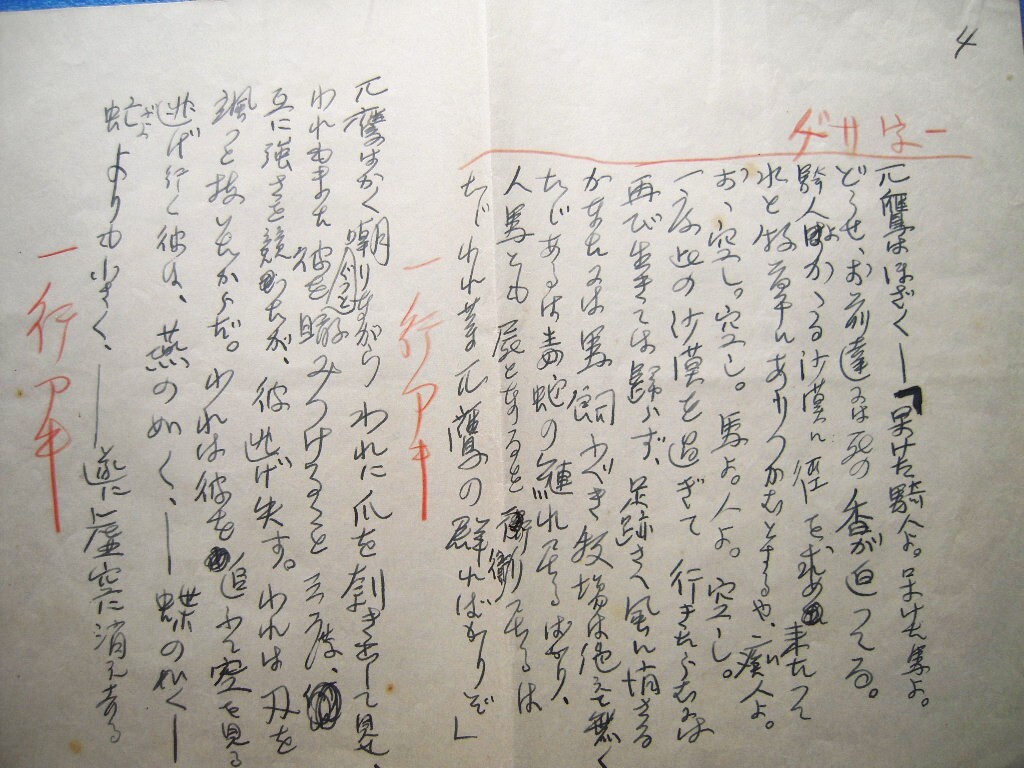 4
一字サゲ
兀鷹はほざく―「呆けた騎人よ。呆けた馬よ。
どうせ、お前達には死の香が迫つてる。
騎人よ かゝる沙漠に径を求め来たつて
水と牧草にありつかむとするや、癡人よ。
おゝ空し。空し。馬よ。人よ。空し。
一度此の沙漠を過ぎて 行きたらむには
再び生きては歸らず、足跡さへ風に悄さる
かなたには馬飼ふべき牧場は絶えて無く
たゞあるは毒蛇の群れてるばかり、
人馬とも 屍となると 衝つてるは
たゞわれ等兀鷹の群ればかりぞ」
一行アキ
兀鷹はかく嘲りながら われに爪を剥き出して見せ、
われもまた彼を ぐつと 睨みつけること 三度、
互に強さを競つたが、彼 逃げ失す。われは刃を
颯つと抜いたからだ。われは彼を 追ふて空を見る
逃げ行く彼は、燕の如く、―蝶の如く―
虻よりも小さく、――遂に虚空に消え去る
一行アキ